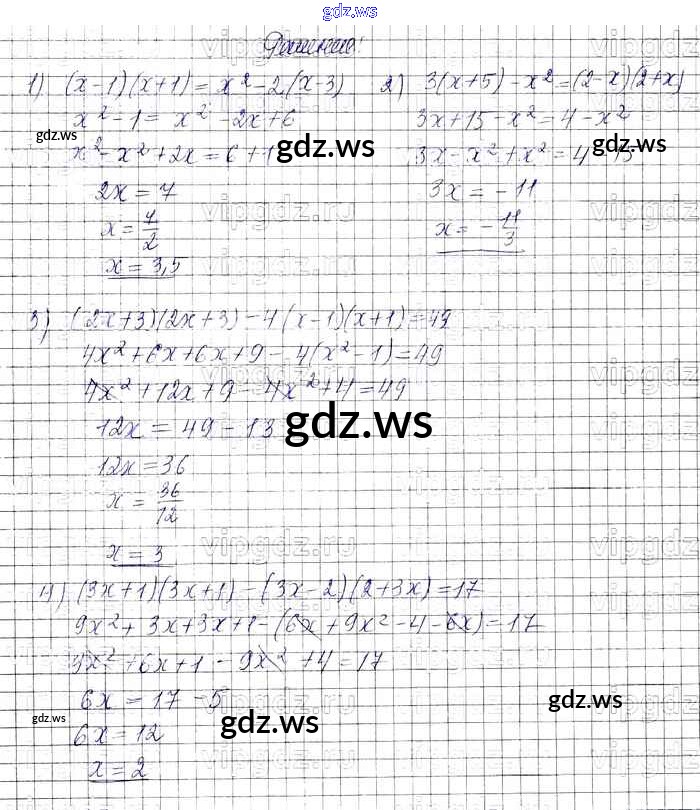 gdz.ws
Решение:
1) (x-1)(x+1) = x²-2(x-3)
x²-1 = x²-2x+6
x²-x²+2x = 6+1
2x = 7
x = 7/2
x = 3,5
2) 3(x+5)-x² = (2-x)(2+x)
3x+15-x² = 4-x²
3x-x²+x² = 4-15
3x = -11
x = -11/3
3) (2x+3)(2x+3)-4(x-1)(x+1) = 49
4x²+6x+6x+9-4(x²-1) = 49
4x²+12x+9-4x²+4 = 49
12x = 49-13
12x = 36
x = 36/12
x = 3
4) (3x+1)(3x+1)-(3x-2)(2+3x) = 17
9x²+3x+3x+1-(6x+9x²-4-6x) = 17
9x²+6x+1-9x²+4 = 17
6x = 17-5
6x = 12
x = 2
gdz.ws
gdz.ws
gdz.ws
gdz.ws
gdz.ws
gdz.ws
gdz.ws
vipgdz.ru